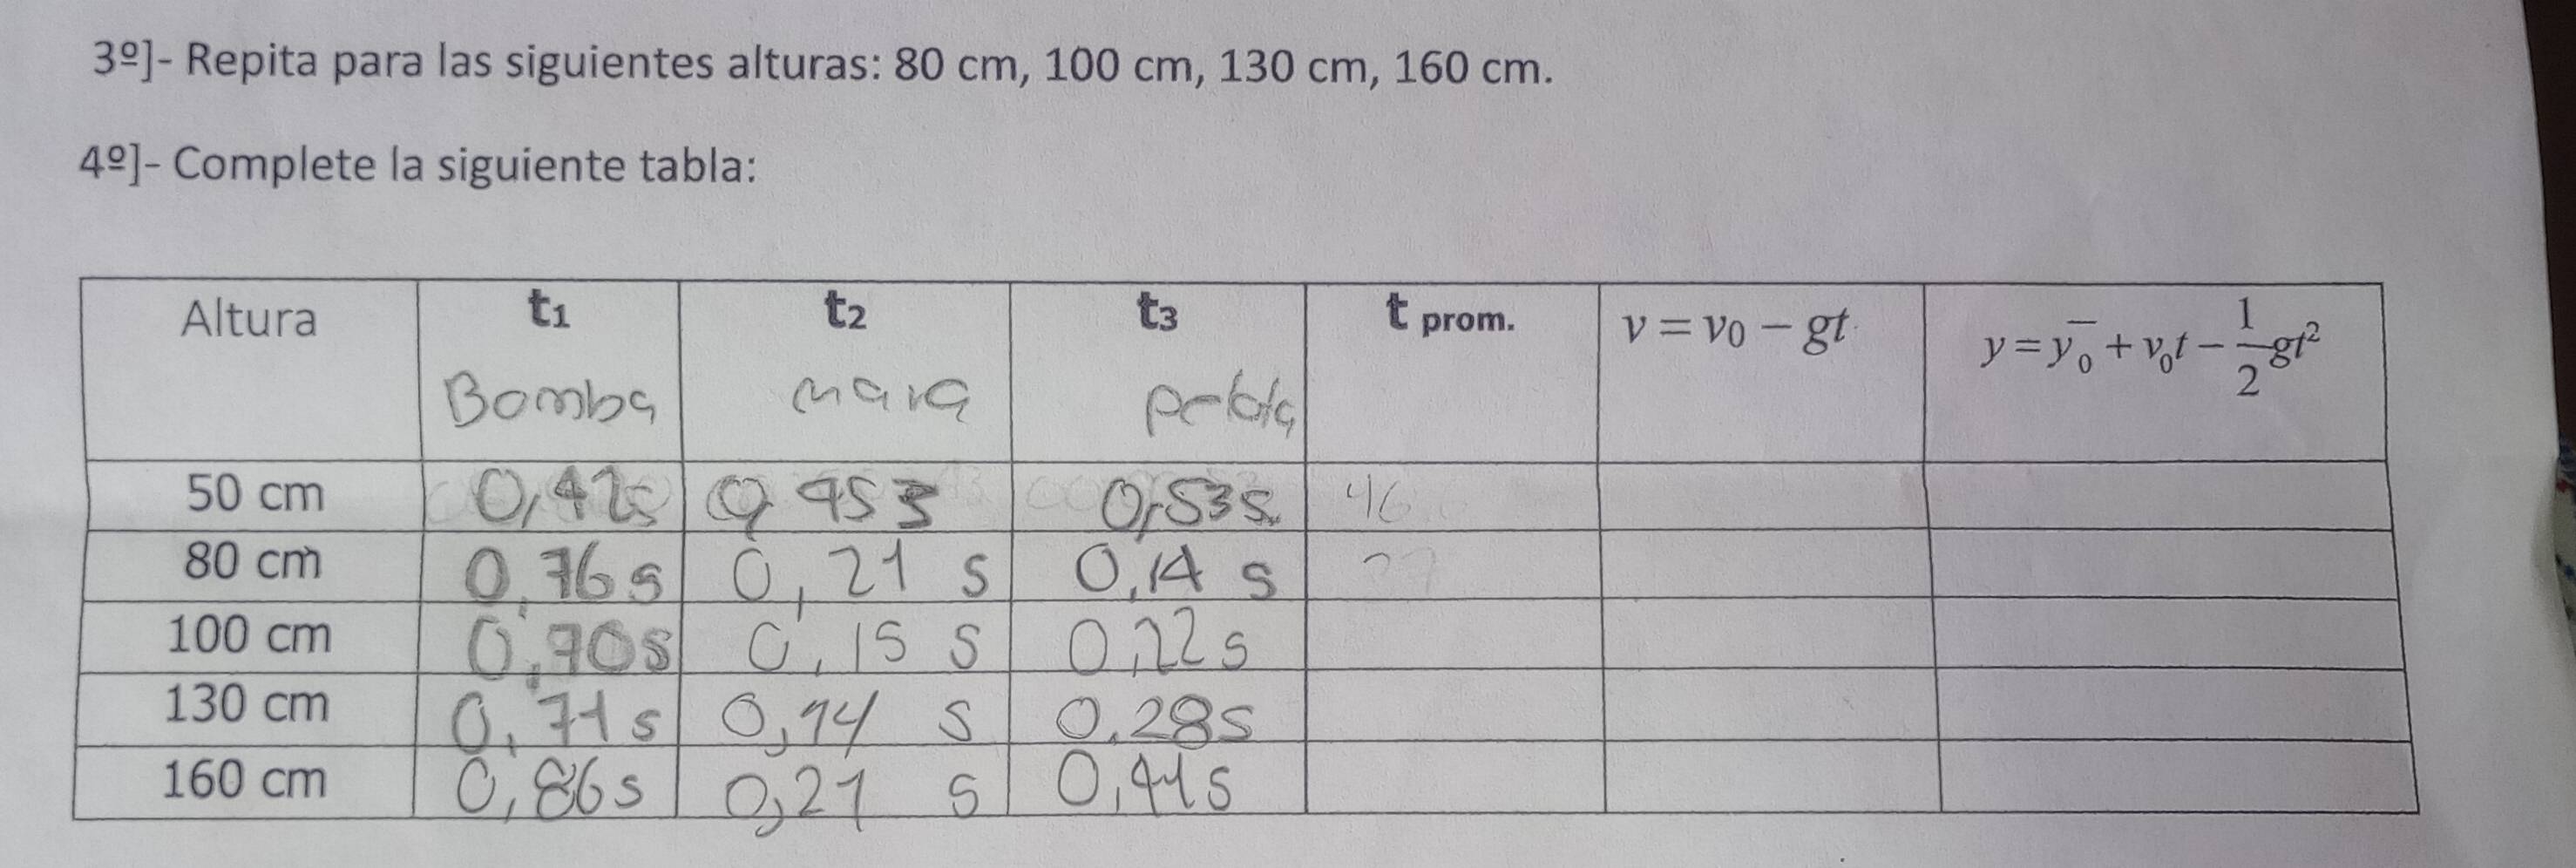 3º]- Repita para las siguientes alturas: 80 cm, 100 cm, 130 cm, 160 cm.
4º]- Complete la siguiente tabla:
Altura t₁ t₂ t₃ t prom. v = v₀ − gt y = y₀ + v₀t − 1/2 gt²
Bomba pelota
50 cm 0,42s 0,53s 46
80 cm 0,76s 0,21 s 0,14 s
100 cm 0,70s 0,15 s 0,22s
130 cm 0,71s 0,14 s 0,28s
160 cm 0,86s 0,21 s 0,41s